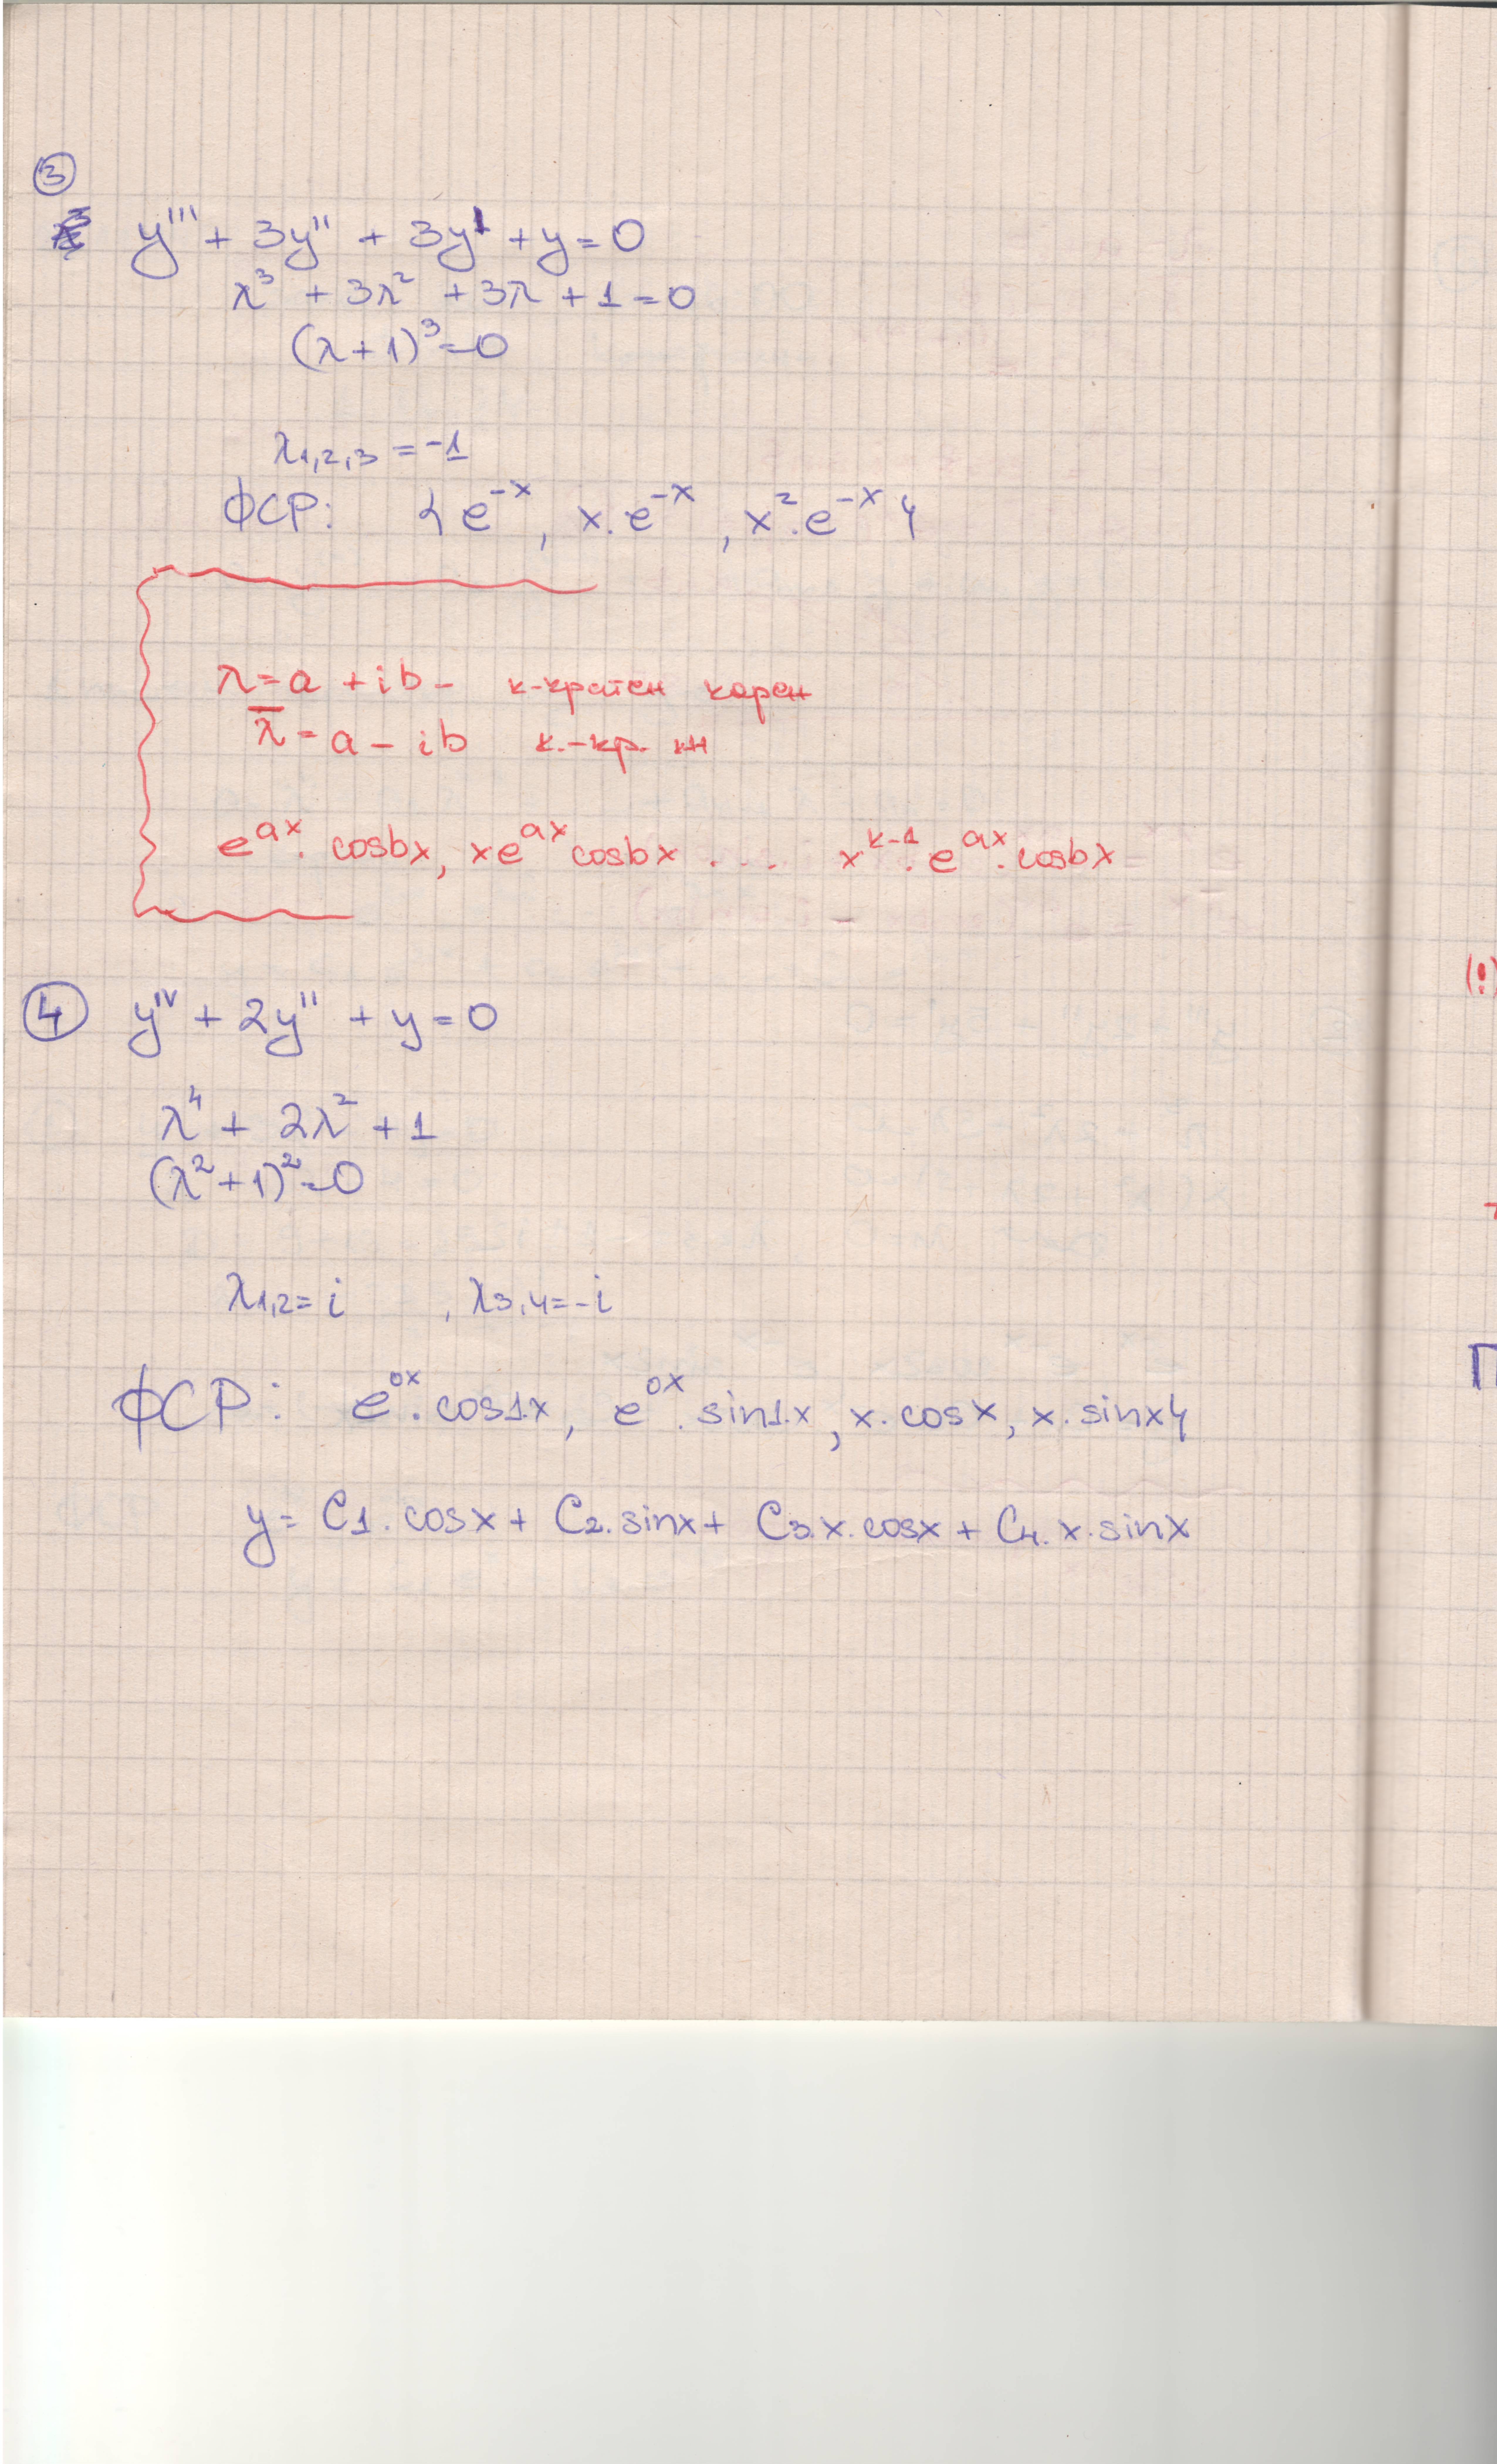 ③
y''' + 3y'' + 3y' + y = 0
λ³ + 3λ² + 3λ + 1 = 0
(λ+1)³ = 0
λ1,2,3 = -1
ФСР: {e^-x, x.e^-x, x².e^-x}
λ = a + ib - к-кратен корен
λ̅ = a - ib к.-кр.
e^ax . cosbx, xe^ax cosbx .... x^k-1 . e^ax . cosbx
(!)
④ y^IV + 2y'' + y = 0
λ⁴ + 2λ² + 1
(λ²+1)² = 0
λ1,2 = i , λ3,4 = -i
ФСР: e^0x . cos1.x, e^0x . sin1.x, x. cosx, x. sinx}
y = C1. cosx + C2. sinx + C3.x. cosx + C4. x. sinx